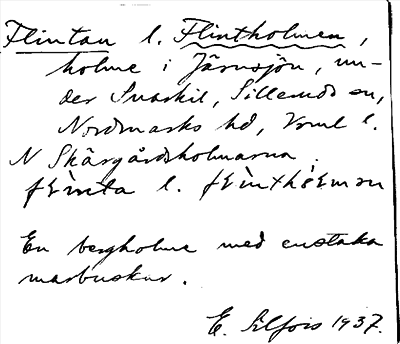 Flintan l. Flintholmen,
holme i Järnsjön, un-
der Svarkil, Silleruds sn,
Nordmarks hd, Vrml l.
N Skärgårdsholmarna.
l.
En bergholme med enstaka
marbuskar.
E. 1937.